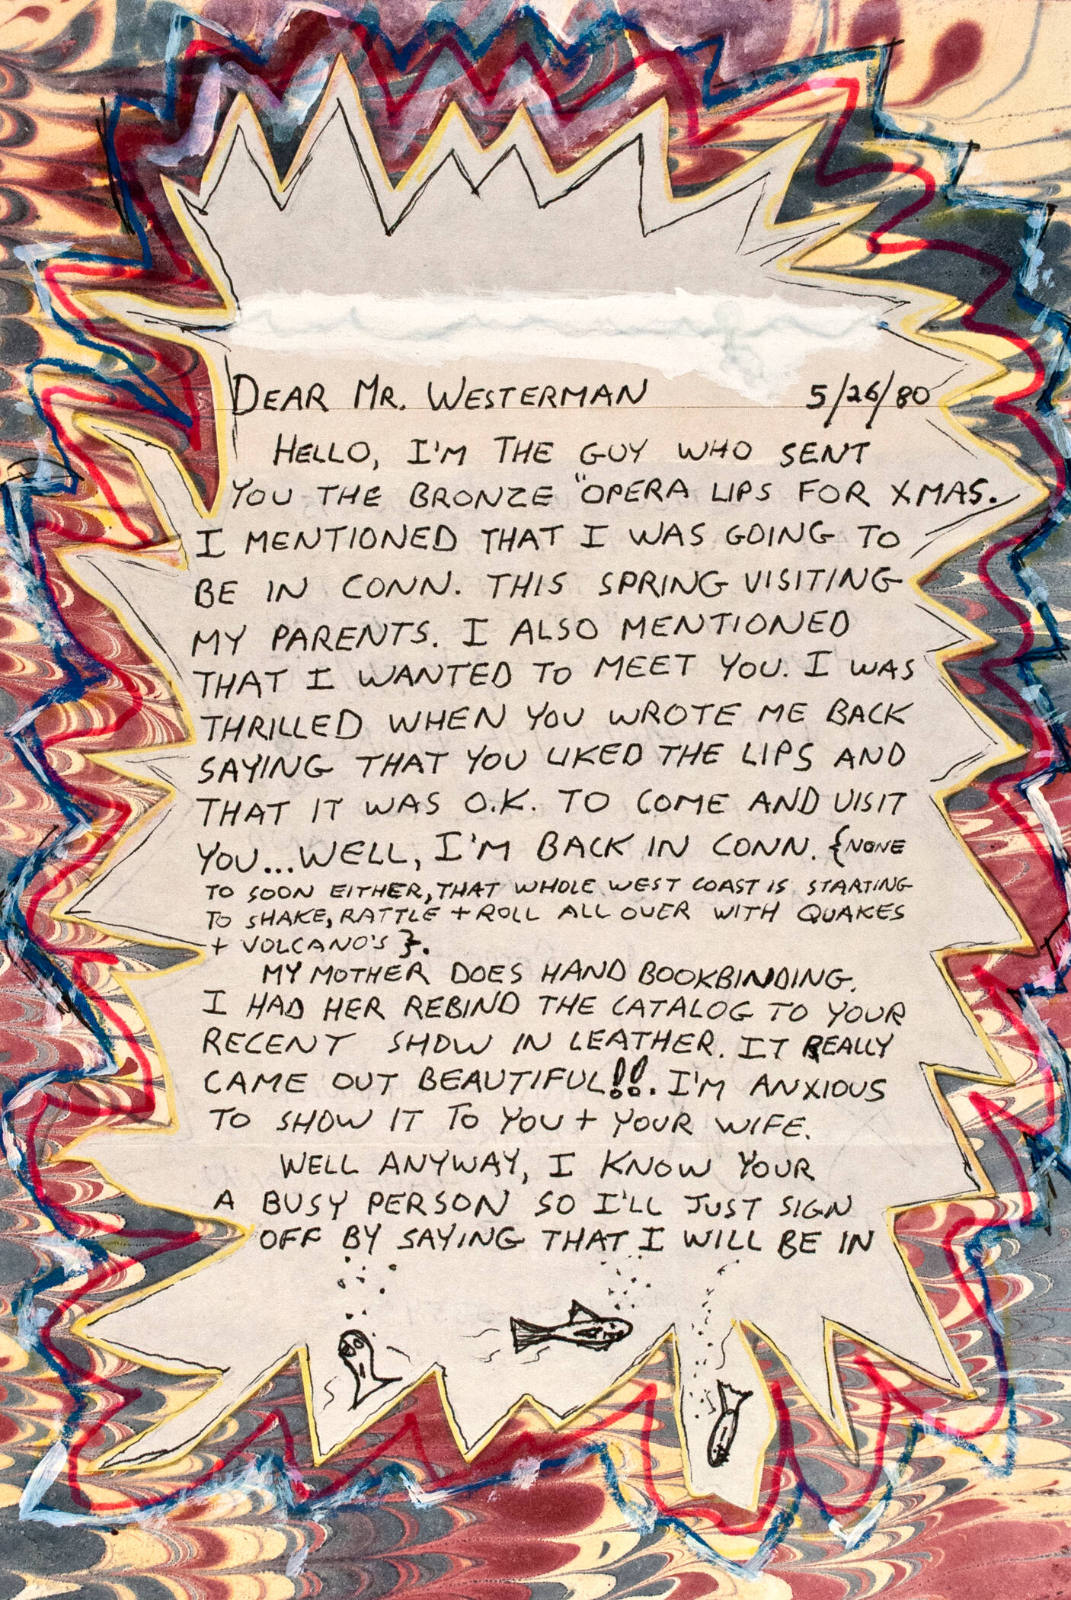 DEAR MR. WESTERMAN 5/26/80
HELLO, I'M THE GUY WHO SENT
YOU THE BRONZE "OPERA LIPS FOR XMAS.
I MENTIONED THAT I WAS GOING TO
BE IN CONN. THIS SPRING VISITING
MY PARENTS. I ALSO MENTIONED
THAT I WANTED TO MEET YOU. I WAS
THRILLED WHEN YOU WROTE ME BACK
SAYING THAT YOU LIKED THE LIPS AND
THAT IT WAS O.K. TO COME AND VISIT
YOU...WELL, I'M BACK IN CONN. {NONE
TO SOON EITHER, THAT WHOLE WEST COAST IS STARTING
TO SHAKE, RATTLE + ROLL ALL OVER WITH QUAKES
+ VOLCANO'S}.
MY MOTHER DOES HAND BOOKBINDING.
I HAD HER REBIND THE CATALOG TO YOUR
RECENT SHOW IN LEATHER. IT REALLY
CAME OUT BEAUTIFUL!!. I'M ANXIOUS
TO SHOW IT TO YOU + YOUR WIFE.
WELL ANYWAY, I KNOW YOUR
A BUSY PERSON SO I'LL JUST SIGN
OFF BY SAYING THAT I WILL BE IN